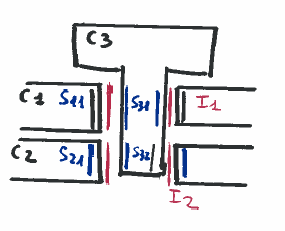 C3
C1 S11 S31 I1
C2 S21 S32 I2